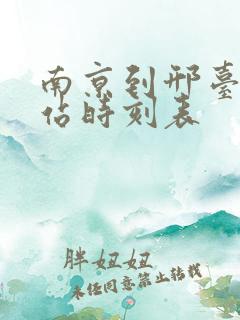 南京到邢臺
佔時刻表
胖妞妞
未经同意禁止转载